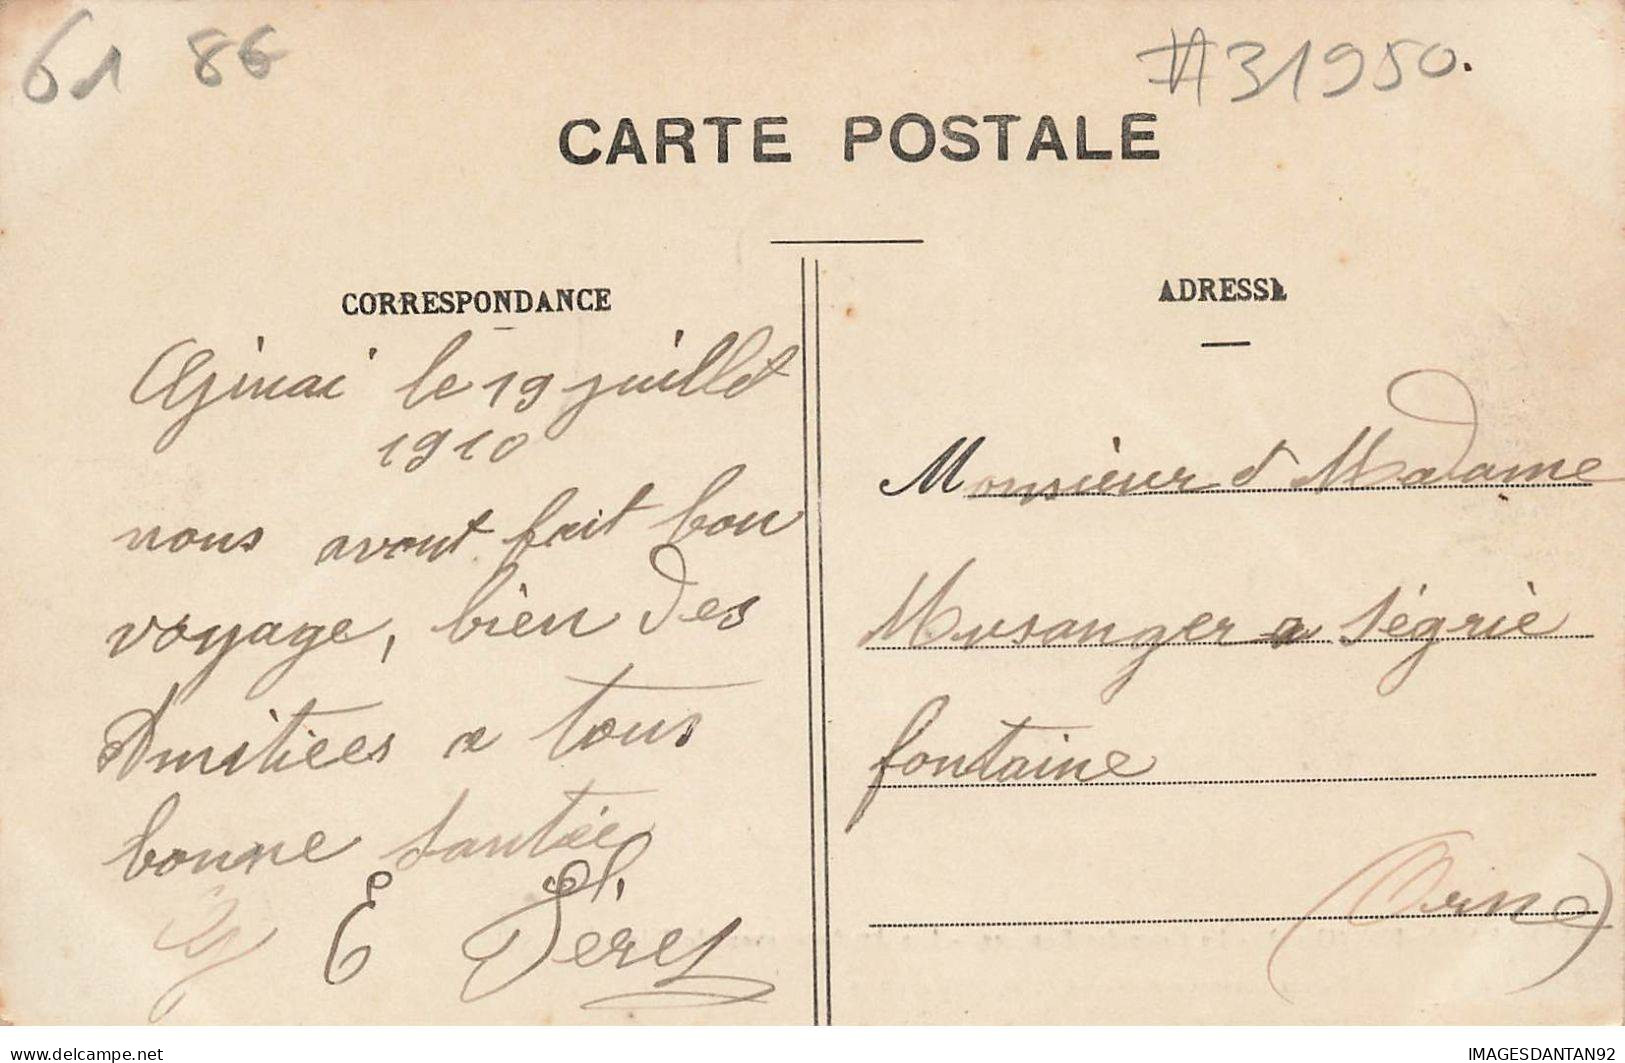 61 86
#31950.
CARTE POSTALE
CORRESPONDANCE
le 19 juillet
1910
nous avont fait bon
voyage, bien des
Amitiees a tous
bonne santée
E
ADRESSE
Monsieur et Madame
Musanger a Ségrie
fontaine
(Orne)
delcampe.net
IMAGESDANTAN92